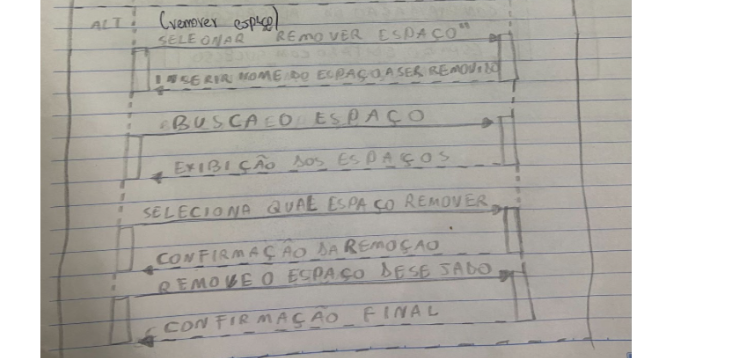 ALT (remover espaço)
SELEONAR REMOVER ESPAÇO"
INSERIR NOME DO ESPAÇO A SER REMOVIDO
BUSCA O ESPAÇO
EXIBIÇÃO DOS ESPAÇOS
SELECIONA QUAL ESPAÇO REMOVER
CONFIRMAÇÃO DA REMOÇAO
REMOVE O ESPAÇO DESEJADO
CONFIRMAÇÃO FINAL